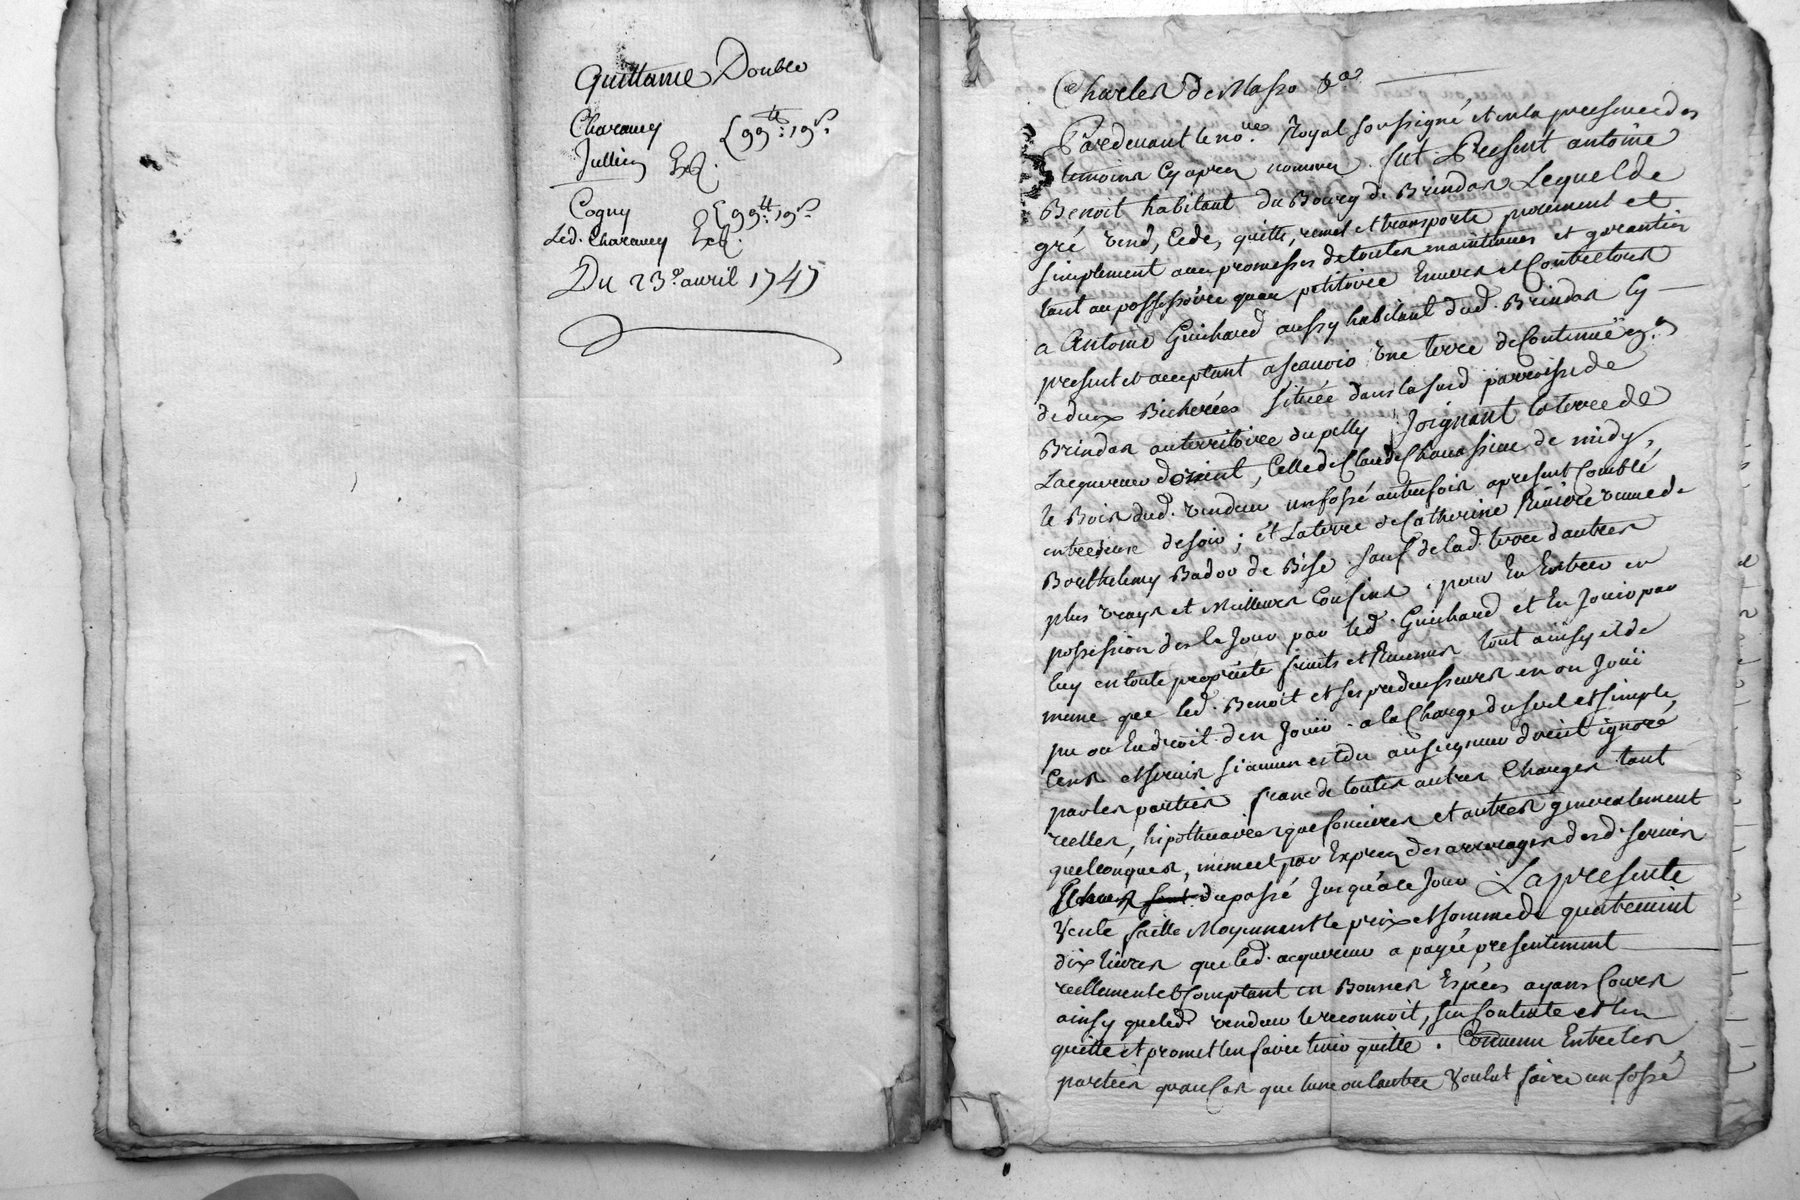 Quittance Double
Charavey {99tt:19s.
Jullien Exp.
Cogny {99tt:19s
Led. Charavey Exp.
Du 23e. avril 1747
Charles de Masso &a.
Pardevant le no.re Royal soussigné et en la presence des
temoins cy apres nommes fut Present antoine
Benoit habitant du Bourg de Brindas Lequel de
gré vend, Cede, quitte, remet et transporte purement et
simplement avec promesses de toutes maintenues et garanties
tant au possessoire quau petitoire Envers et Contre tous
a Antoine Guichard aussy habitant dud. Brindas Cy
present et acceptant ascavoir Une terre de Contenüe
de deux Bicherées située dans lasusd parroisse de
Brindas au territoire du pelly Joignant laterre de
Lacquereur dorient, Celle de Claude Chavassieu de midy,
le Bois dud. vendeur un fossé autrefois apresent Comblé
entredeux de soir; et Laterre de Catherine Riviere veuve de
Barthelemy Badov de Bise sauf de lad. terre dautres
plus vrays et Meilleurs Confins, pour En Entrer en
possession des le Jour par led. Guichard et En Jouir par
luy en toute proprieté fruits et Revenus tout ainsy et de
meme que led. Benoit et ses predecesseurs en on Joüi
pu ou En droit den Joüir a la Charge du seul et simple,
Cens et servis si aucun est du au seigneur direct ignoré
par les parties franc de toutes autres Charges tant
reelles, hipothecaires que foncieres et autres generalement
quelconques, mement par Exprez des arrerages desd. servis
du passé Jusquà ce Jour La presente
Vente faitte Moyennant le prix et somme de quatrevint
dix livres que led. acquereur a payée presentement
reellement et Comptant en Bonnes Especes ayans Cours
ainsy queled vendeur le reconnoit, sen Contente et len
quitte et promet len faire tenir quitte. Convenu Entre les
parties quau Cas que lune ou lautre Voulut faire un fossé